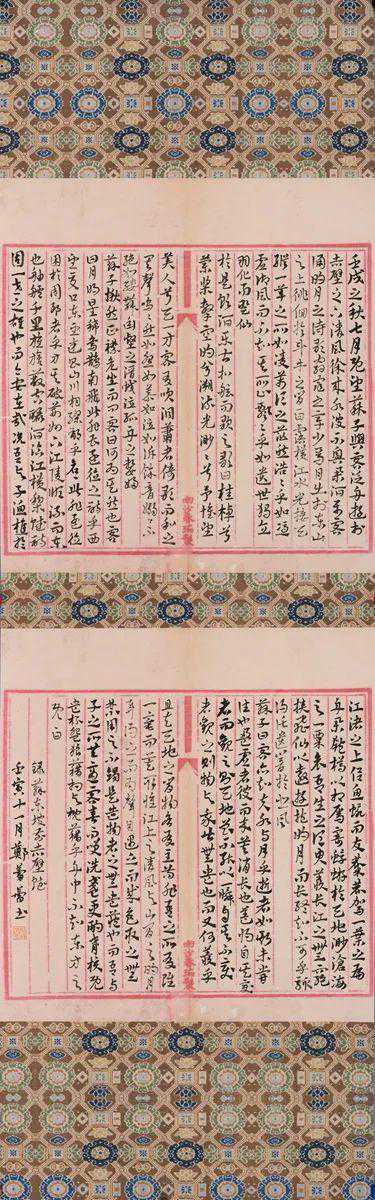 壬戌之秋七月既望蘇子與客泛舟遊於
赤壁之下清風徐來水波不興舉酒屬客
誦明月之詩歌窈窕之章少焉月出於東山
之上徘徊於斗牛之間白露橫江水光接天
縱一葦之所如凌萬頃之茫然浩浩乎如馮
虛御風而不知其所止飄飄乎如遺世獨立
羽化而登仙
於是飲酒樂甚扣舷而歌之歌曰桂棹兮
蘭槳擊空明兮溯流光渺渺兮予懷望
美人兮天一方客有吹洞簫者倚歌而和之
其聲嗚嗚然如怨如慕如泣如訴餘音嫋嫋不
絕如縷舞幽壑之潛蛟泣孤舟之嫠婦
蘇子愀然正襟危坐而問客曰何為其然也客
曰月明星稀烏鵲南飛此非曹孟德之詩乎西
望夏口東望武昌山川相繆鬱乎蒼蒼此非孟德之
困於周郎者乎方其破荊州下江陵順流而東
也舳艫千里旌旗蔽空釃酒臨江橫槊賦詩
固一世之雄也而今安在哉況吾與子漁樵於
江渚之上侶魚蝦而友麋鹿駕一葉之扁
舟舉匏樽以相屬寄蜉蝣於天地渺滄海
之一粟哀吾生之須臾羨長江之無窮
挾飛仙以遨遊抱明月而長終知不可乎驟
得託遺響於悲風
蘇子曰客亦知夫水與月乎逝者如斯而未嘗
往也盈虛者如彼而卒莫消長也蓋將自其變
者而觀之則天地曾不能以一瞬自其不變
者觀之則物與我皆無盡也而又何羨乎
且夫天地之間物各有主苟非吾之所有雖
一毫而莫取惟江上之清風與山間之明月
耳得之而為聲目遇之而成色取之無
禁用之不竭是造物者之無盡藏也而吾與
子之所共適客喜而笑洗盞更酌肴核既
盡杯盤狼藉相與枕藉乎舟中不知東方之
既白
錄蘇東坡前赤壁賦
壬寅十一月鄭書